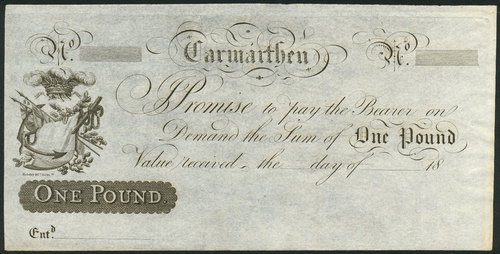 No. Carmarthen No.
I Promise to pay the Bearer on
Demand the Sum of One Pound
Value received, the day of 18
ONE POUND.
Entd.